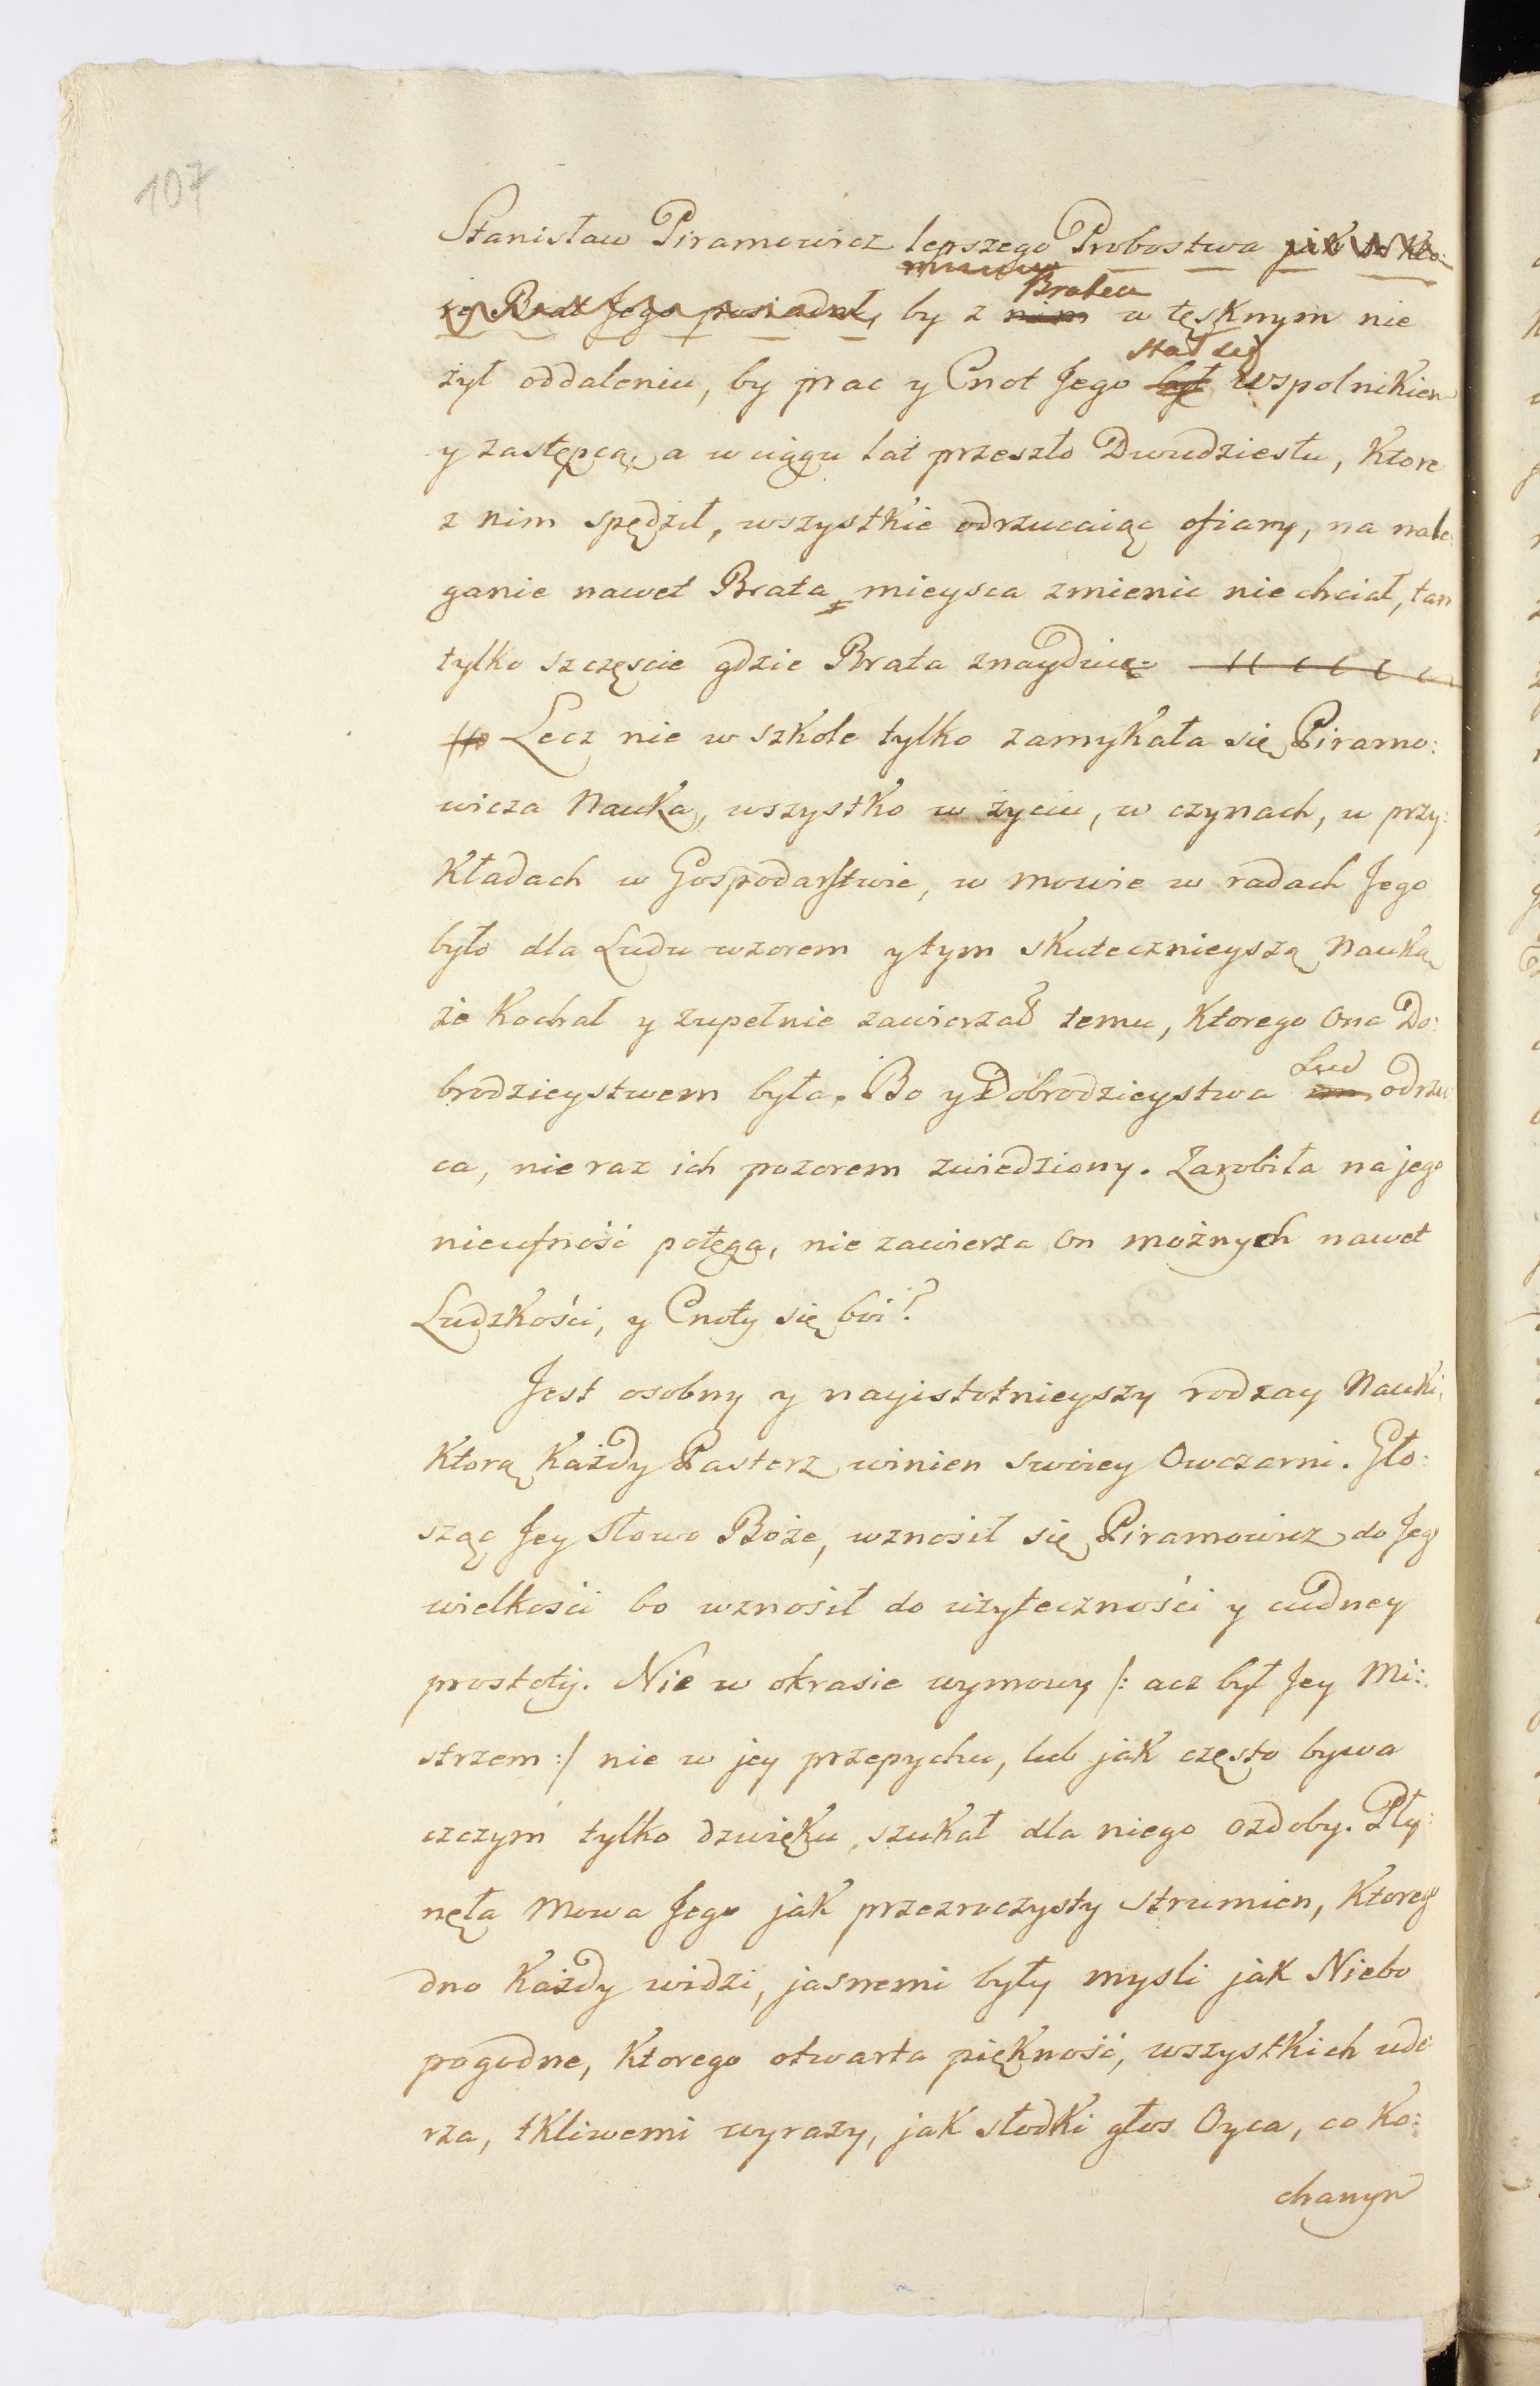 107
Stanisław Piramowicz lepszego Probostwa jak to kto:
re Brat Jego posiadał, by z nim Bratem w tęsknym nie
żył oddaleniu, by prac y Cnot Jego był stał się wspolnikiem
y zastępcą, a w ciągu lat przeszło Dwudziestu, ktore
z nim spędził, wszystkie odrzucaiąc ofiary, na nale:
ganie nawet Brata mieysca zmienic nie chciał, tam
tylko szczęscie gdzie Brata znayduiąc
Lecz nie w szkole tylko zamykała się Piramo:
wicza Nauka, wszystko w życiu, w czynach, w przy:
kładach w Gospodarstwie, w mowie w radach Jego
było dla Ludu wzorem y tym skutecznieyszą Nauką
że kochał y zupełnie zawierzał temu, ktorego Ona Do:
brodzieystwem była. Bo y Dobrodzieystwa Lud odrzu
ca, nie raz ich pozorem zwiedziony. Zarobiła na jego
nieufność potęga, nie zawierza on możnych nawet
Ludzkości, y Cnoty się boi!
Jest osobny y nayistotnieyszy rodzay Nauki,
ktorą każdy Pasterz winien swoiey Owczarni. Gło:
sząc Jey Słowo Boże, wznosił się Piramowicz do Jego
wielkości bo wznosił do użyteczności y cudney
prostoty. Nie w okrasie wymowy /: acz był Jey Mi:
strzem :/ nie w jey przepychu, lub jak często bywa
czczym tylko dzwięku, szukał dla niego ozdoby. Pły:
nęła Mowa Jego jak przezroczysty strumien, ktorego
dno każdy widzi, jasnemi były mysli jak Niebo
pogodne, ktorego otwarta piękność, wszystkich ude
rza, tkliwemi wyrazy, jak słodki głos Oyca, co ko:
chanym